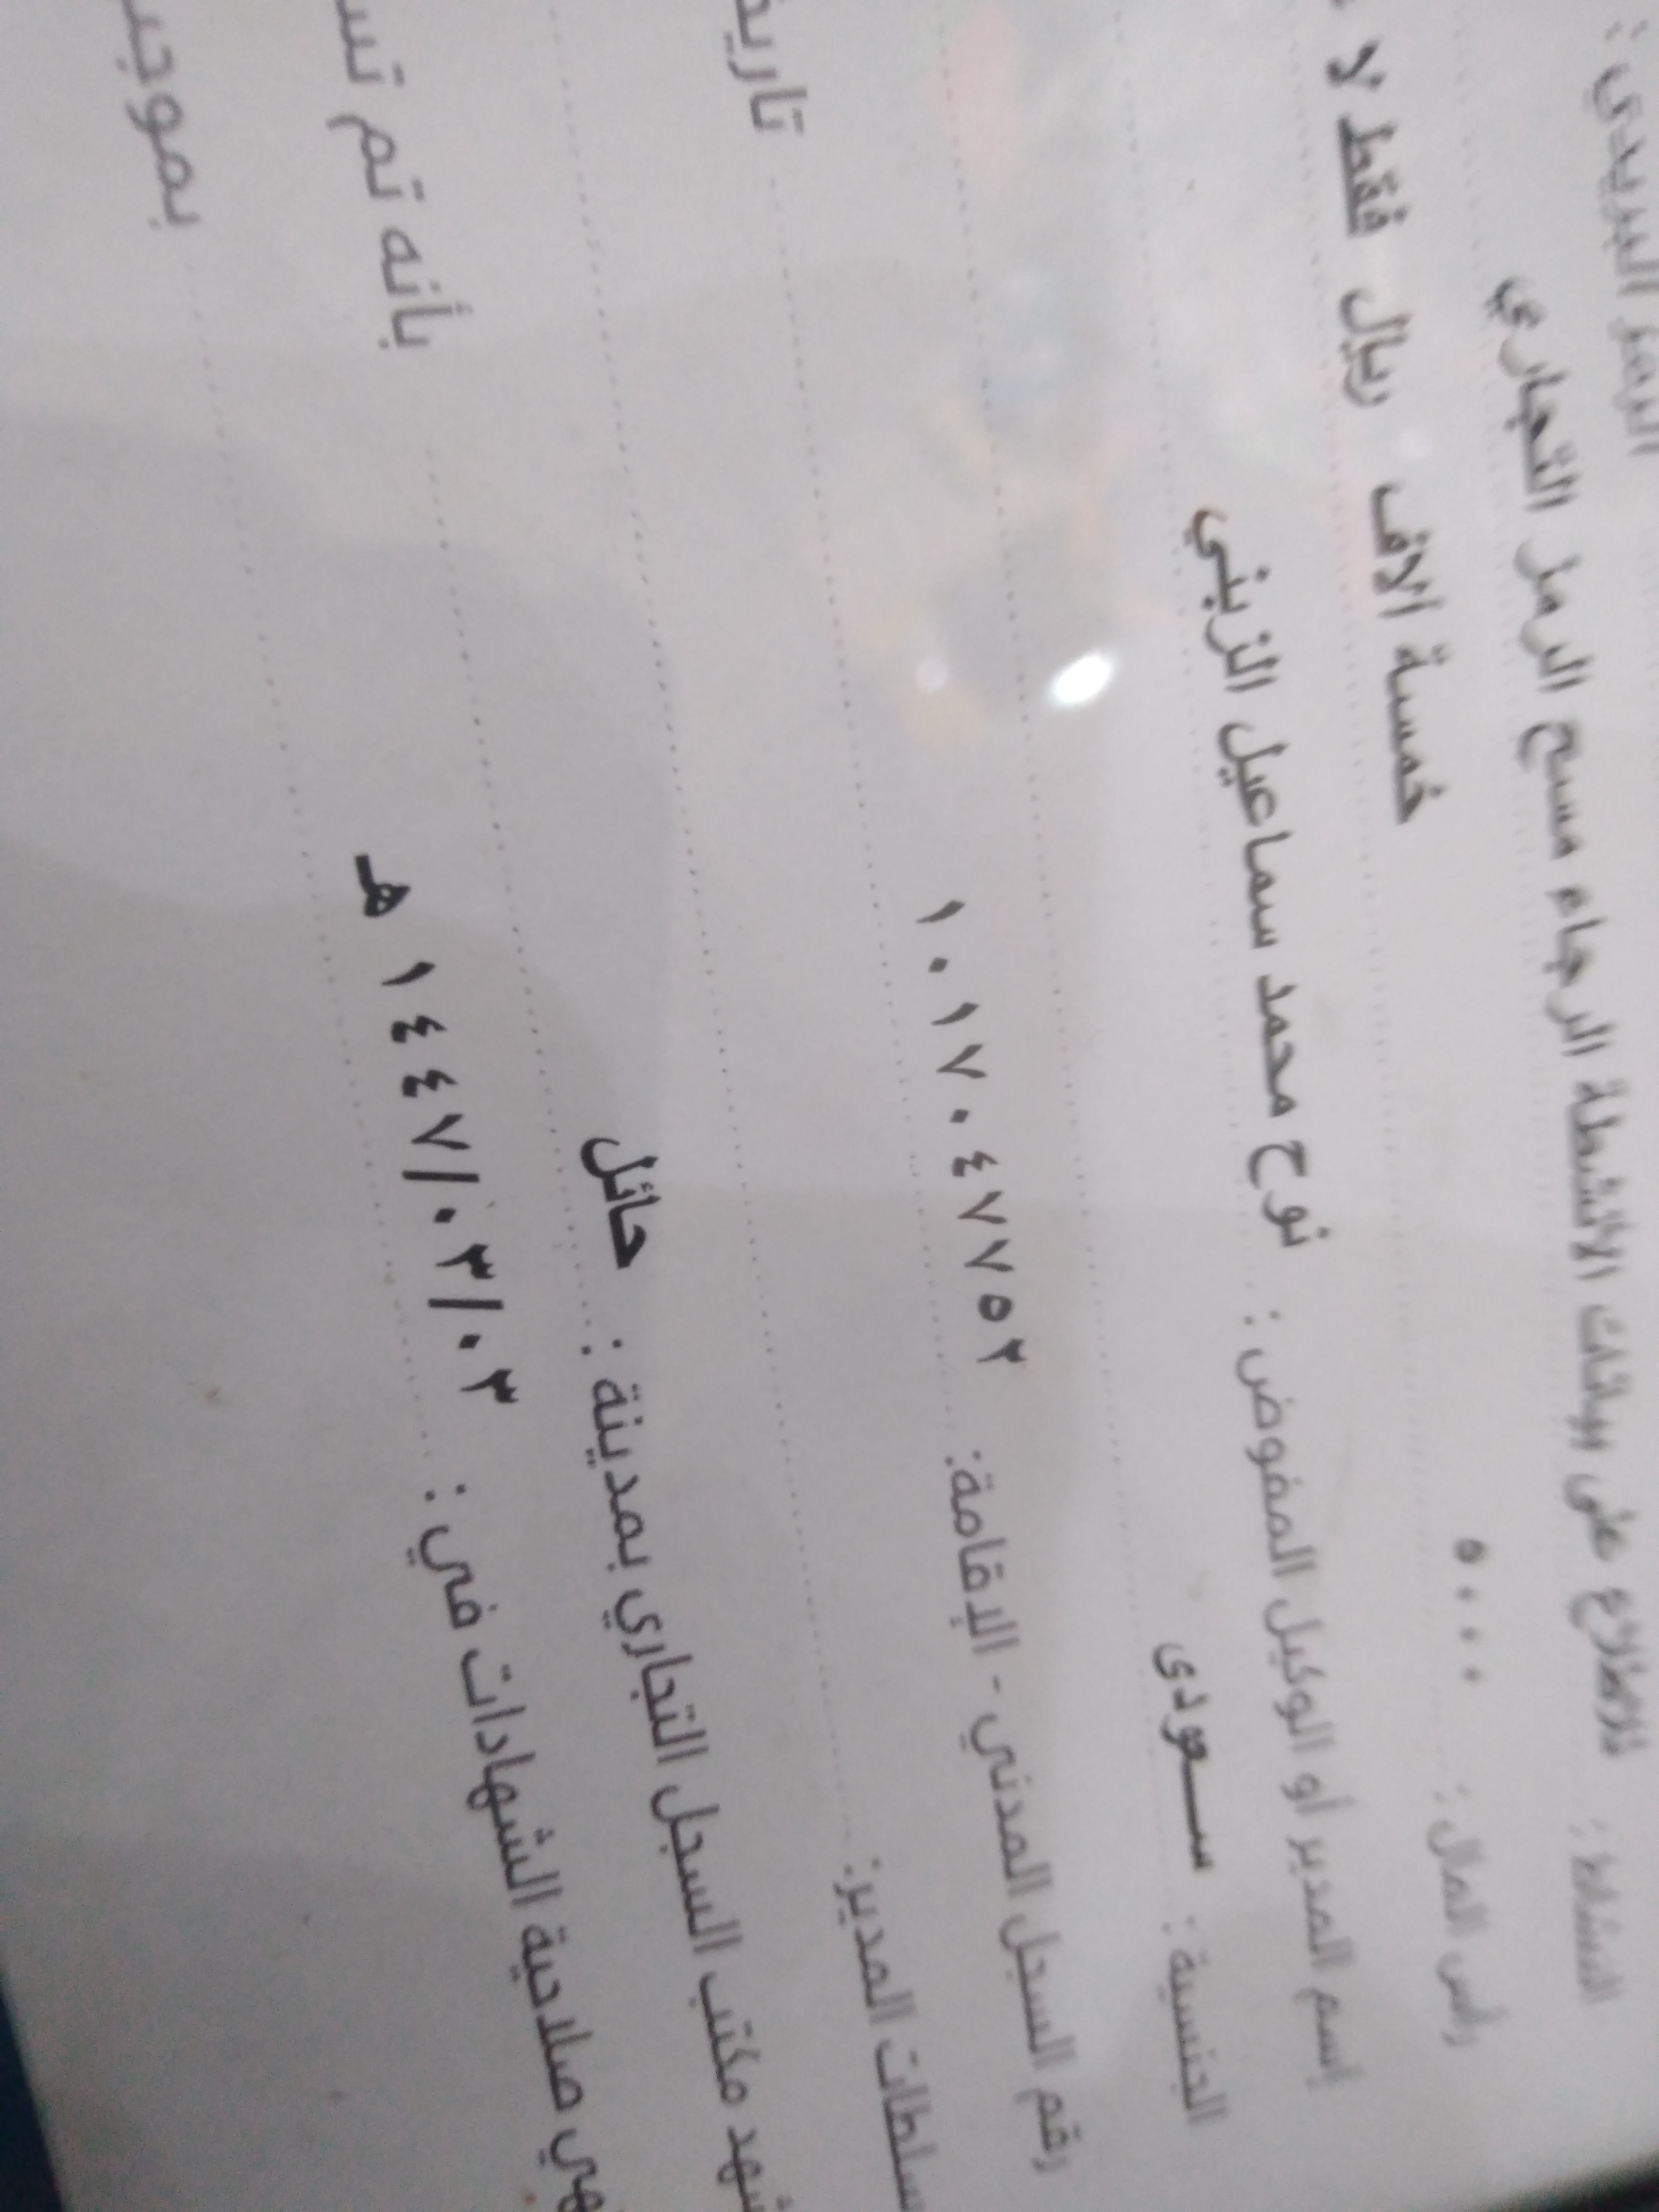 الرمز البريدي :
النشاط : للاطلاع على بيانات الانشطة الرجاء مسح الرمز التجاري
رأس المال : ٥٠٠٠ خمسة آلاف ريال فقط لا
إسم المدير أو الوكيل المفوض : نوح محمد سماعيل الزبني
الجنسية : سعودى
رقم السجل المدني - الإقامة: ١٠١٧٠٤٧٧٥٢
سلطات المدير:
يشهد مكتب السجل التجاري بمدينة : حائل بأنه تم
صلاحية الشهادات في : ١٤٤٧/٠٣/٠٣ هـ